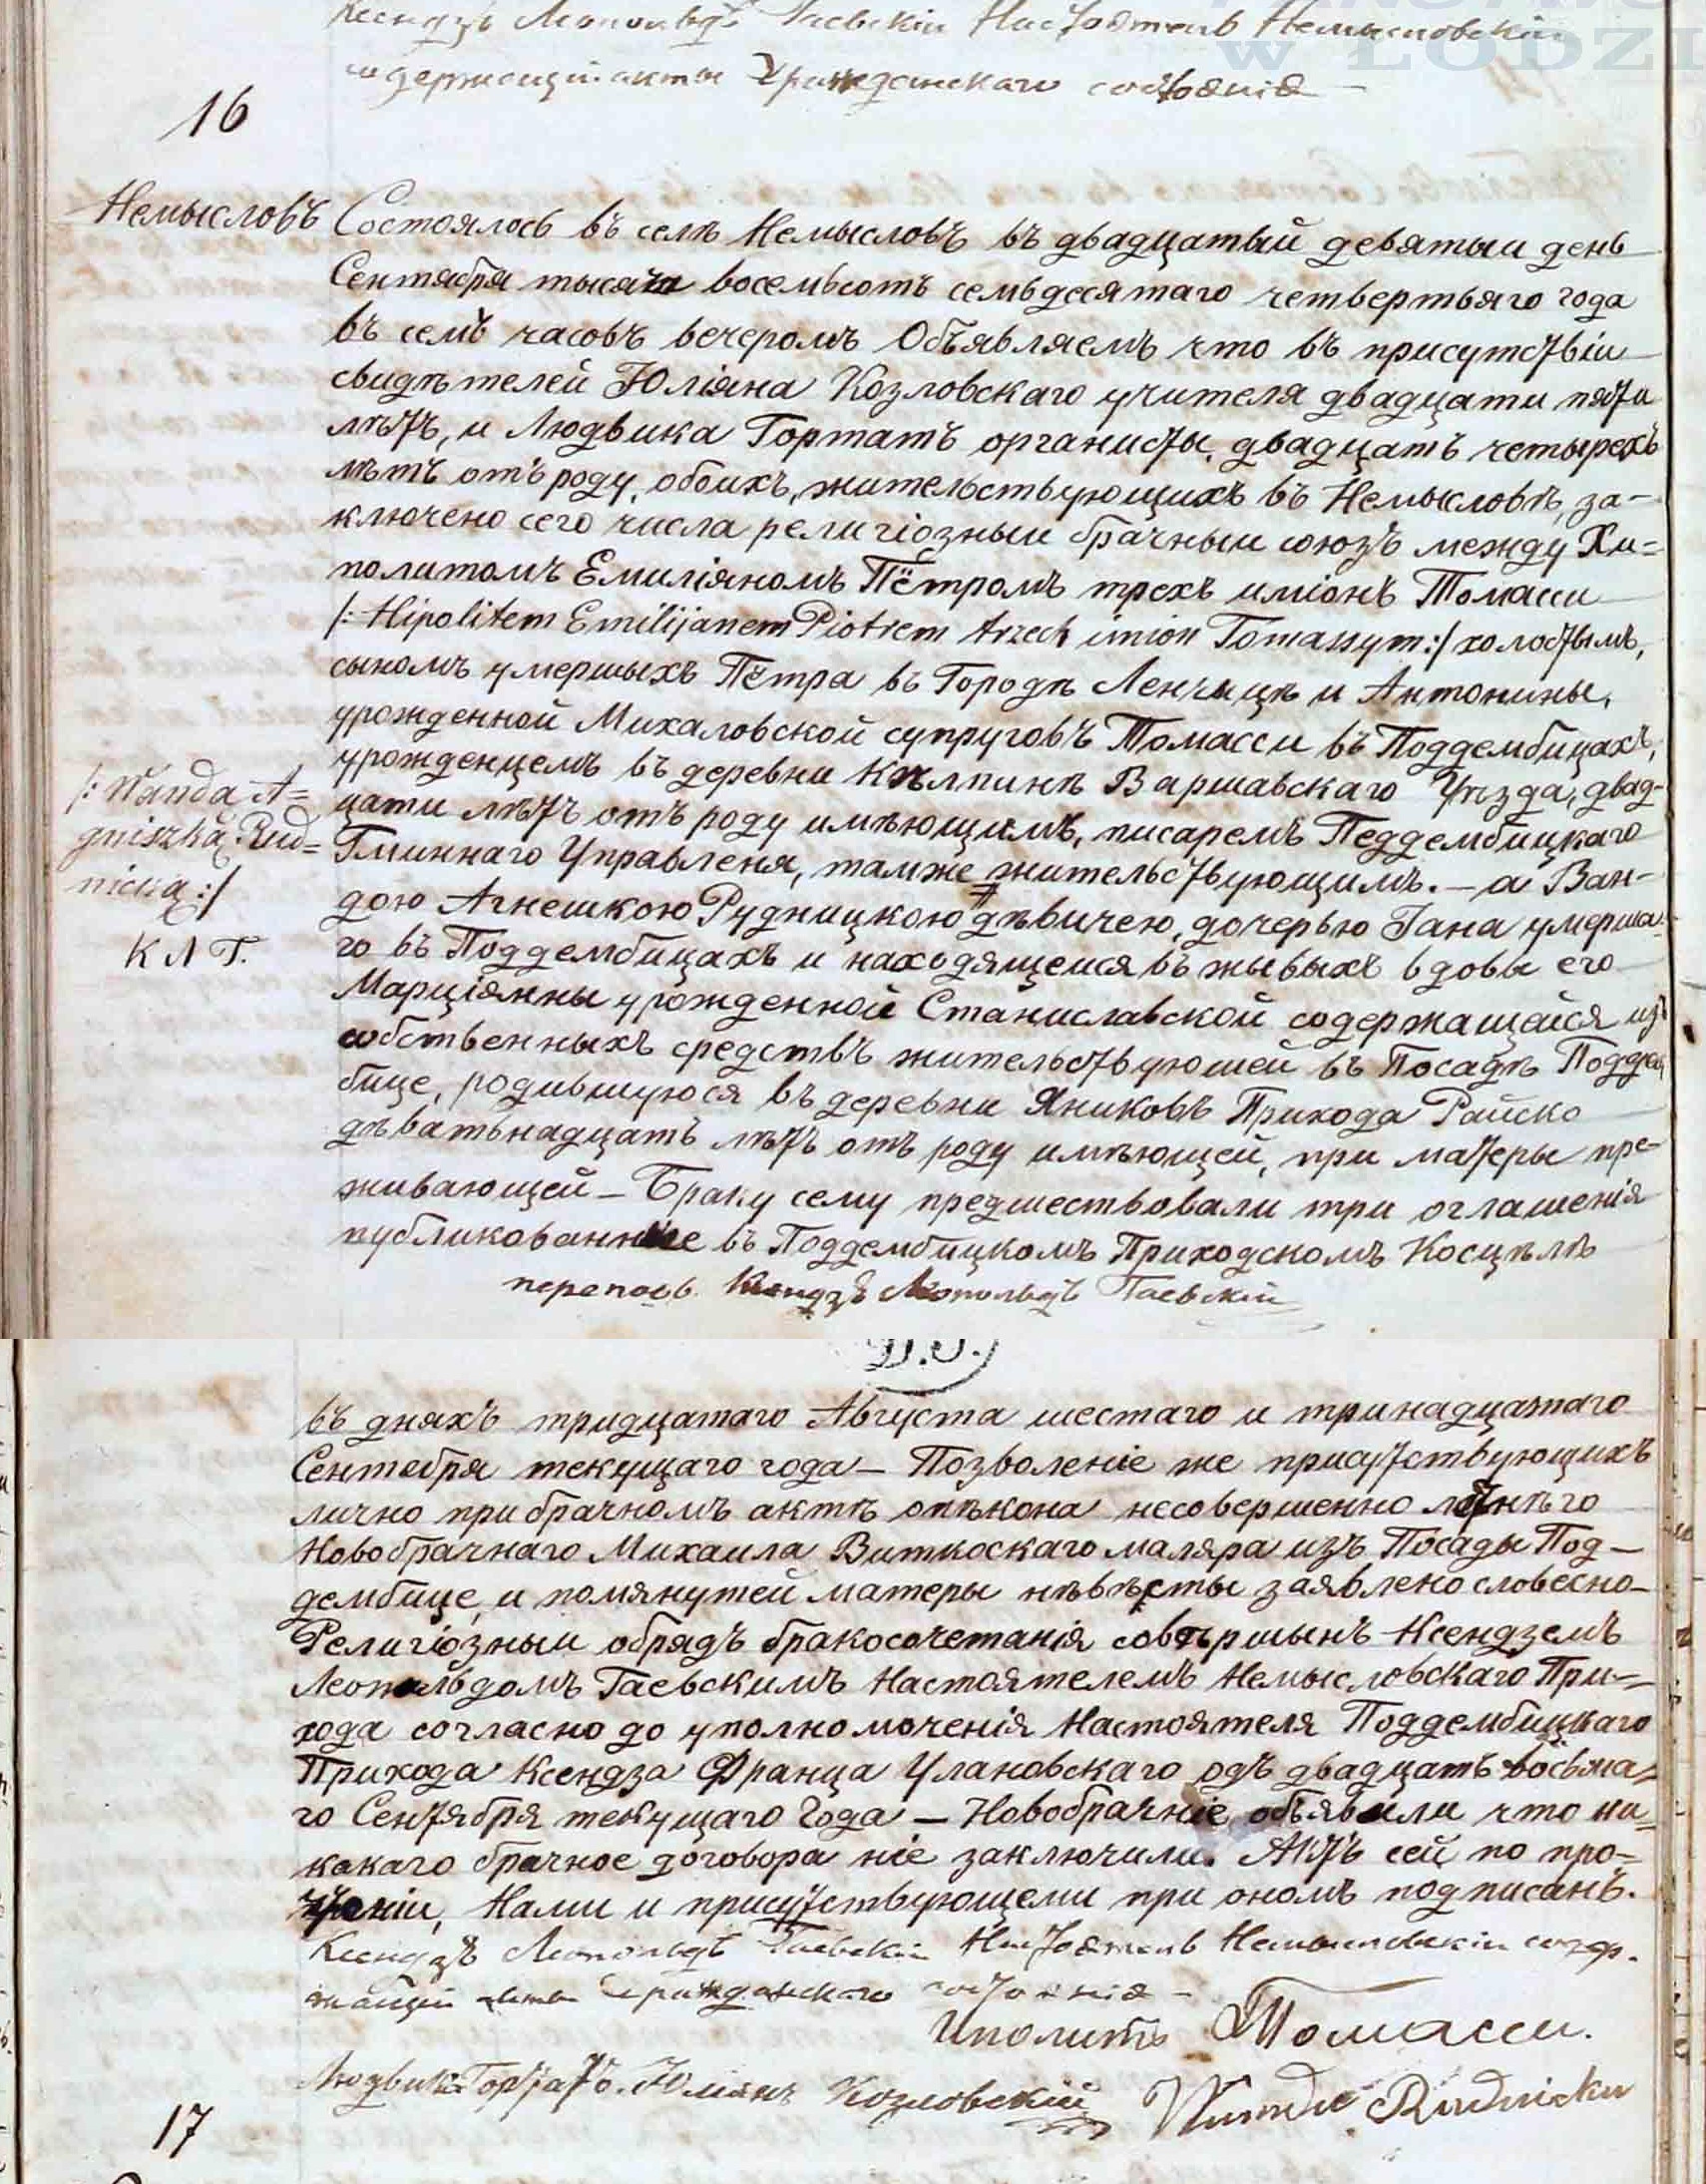 Ксендзъ Леопольдъ Гаевскiи Настоятель Немысловскiи
содержащiй акты Гражданскаго состоянiя —
w ŁODZI
16
Немысловъ
Состоялось въ селѣ Немысловъ въ двадцатый девятыи день
Сентября тысяча восемьсотъ семьдесятаго четвертьяго года
въ семь часовъ вечеромъ Объявляемъ что въ присутствiи
свидѣтелей Юлiяна Козловскаго учителя двадцати пяти
лѣтъ, и Людвика Гортатъ органисты, двадцать четырехъ
лѣтъ отъ роду, обоихъ, жительствующихъ въ Немысловѣ, за-
ключено сего числа религiозныи брачныи союзъ между Хи=
политомъ Емилiяномъ Пётромъ трехъ имiонъ Томасси
/: Hipolitem Emilijanem Piotrem trzech imion Tomassym :/ холостымъ,
сыномъ умершыхъ Пётра въ Городѣ Ленчицѣ и Антонины,
урожденной Михаловской супруговъ Томасси въ Поддембицахъ,
урожденцемъ въ деревни Кѣлпинѣ Варшавскаго Уѣзда, двад-
цати лѣтъ отъ роду имѣющимъ, писаремъ Педдембицкаго
Гминнаго Управленя, тамже жительствующимъ. — а Ван-
дою Агнешкою Рудницкою # дѣвичею, дочерью Iана умерша-
го въ Поддембицахъ и находящеися въ жывыхъ вдовы его
Марцiянны урожденной Станиславской содержащейся изъ
собственныхъ средствъ жительствуюшей въ Посадѣ Поддем
бице, родившуюся въ деревни Яниковъ Прихода Райско
дѣватьнадцать лѣтъ отъ роду имѣющей, при матеры пре-
живающей — Браку сему предшествовали три оглашенiя
публикованные въ Поддембицкомъ Приходскомъ Косцѣлѣ
/: Wandą A=
gniszką Rud=
nicką :/
К Л Г.
Ксендзъ Леопольдъ Гаевскiи
въ дняхъ тридцатаго Августа шестаго и тринадцатаго
Сентебря текущаго года — Позволенiе же присутствующихъ
лично при брачномъ актѣ опѣкона несовершенно лѣтнѣго
Новобрачнаго Михаила Виткоскаго маляра изъ Посады Под—
дембице, и помянутей матеры нѣвѣсты заявлено словесно—
Религiозныи обрядъ бракосочетанiя совѣршынъ Ксендземъ
Леопольдомъ Гаевскимъ Настоятелемъ Немысловскаго При-
хода согласно до уполномоченiя Настоятеля Поддембицкаго
Прихода Ксендза Франца Улановскаго одъ двадцать восьма-
го Сентября текущаго Года — Новобрачнiе объявили что ни=
какаго брачное договора нiе заключили. Актъ сей по про=
чтенiи, Нами и присутствующеми при ономъ подписанъ.
Ксендзъ Леопольдъ Гаевскiи Настоятель Немысловскiи содер-
жащiи акты Гражданскаго состоянiя —
Иполитъ Томасси.
Людвикъ Гортатъ. Юлiянъ Козловскiй
Wanda Rudnicka
17